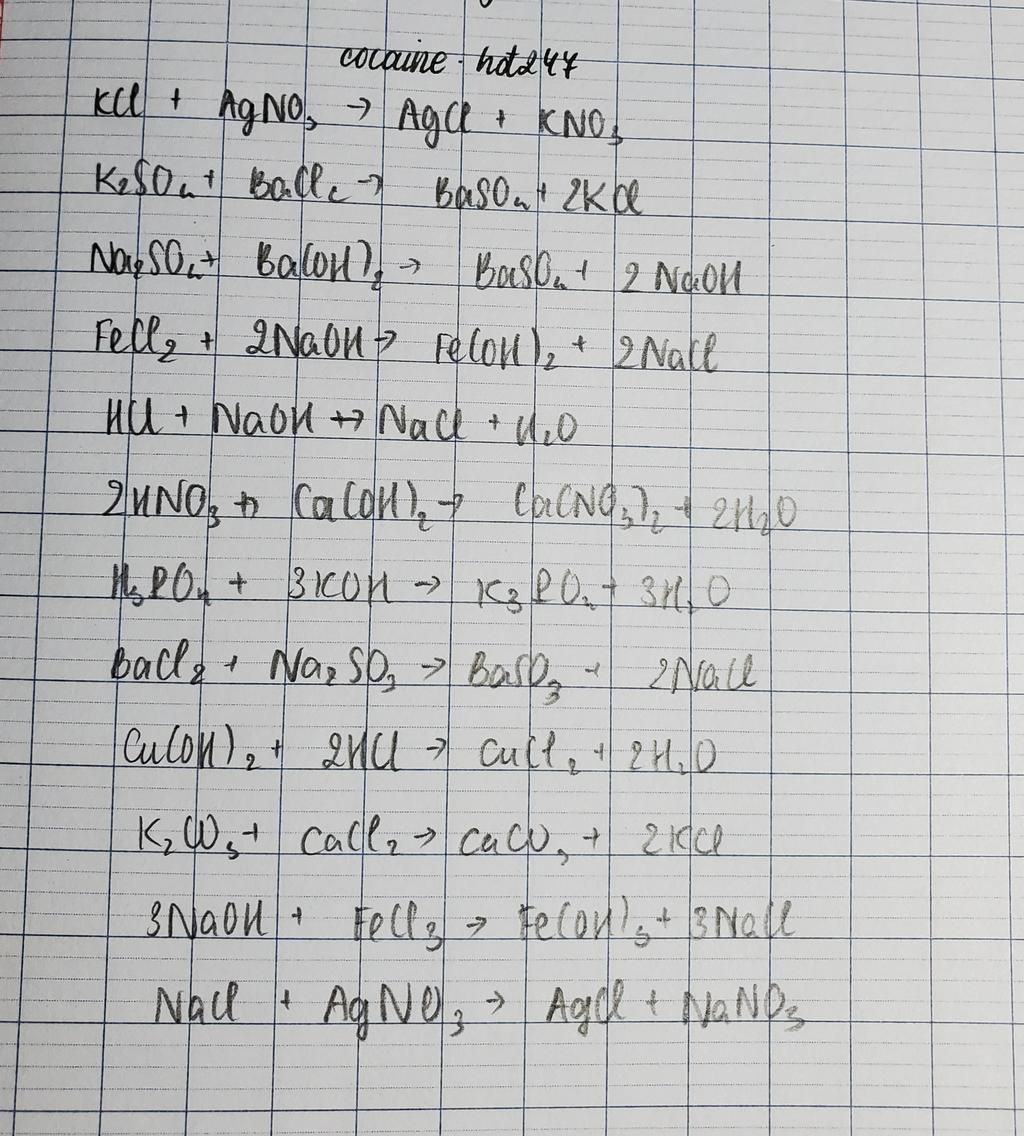 cocaine.hot247
KCl + AgNO₃ → AgCl + KNO₃
K₂SO₄ + BaCl₂ → BaSO₄ + 2KCl
Na₂SO₄ + Ba(OH)₂ → BaSO₄ + 2NaOH
FeCl₂ + 2NaOH → Fe(OH)₂ + 2NaCl
HCl + NaOH → NaCl + H₂O
2HNO₃ + Ca(OH)₂ → Ca(NO₃)₂ + 2H₂O
H₃PO₄ + 3KOH → K₃PO₄ + 3H₂O
BaCl₂ + Na₂SO₃ → BaSO₃ + 2NaCl
Cu(OH)₂ + 2HCl → CuCl₂ + 2H₂O
K₂CO₃ + CaCl₂ → CaCO₃ + 2KCl
3NaOH + FeCl₃ → Fe(OH)₃ + 3NaCl
NaCl + AgNO₃ → AgCl + NaNO₃